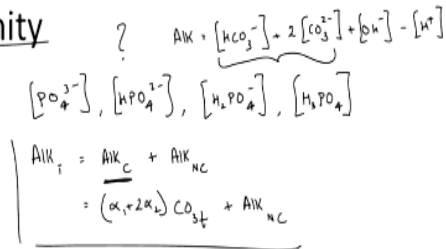 nity
? Alk = [HCO₃⁻] + 2[CO₃²⁻] + [OH⁻] - [H⁺]
[PO₄³⁻], [HPO₄²⁻], [H₂PO₄⁻], [H₃PO₄]
Alkᵢ = Alk_C + Alk_NC
= (α₁+2α₂) CO₃t + Alk_NC